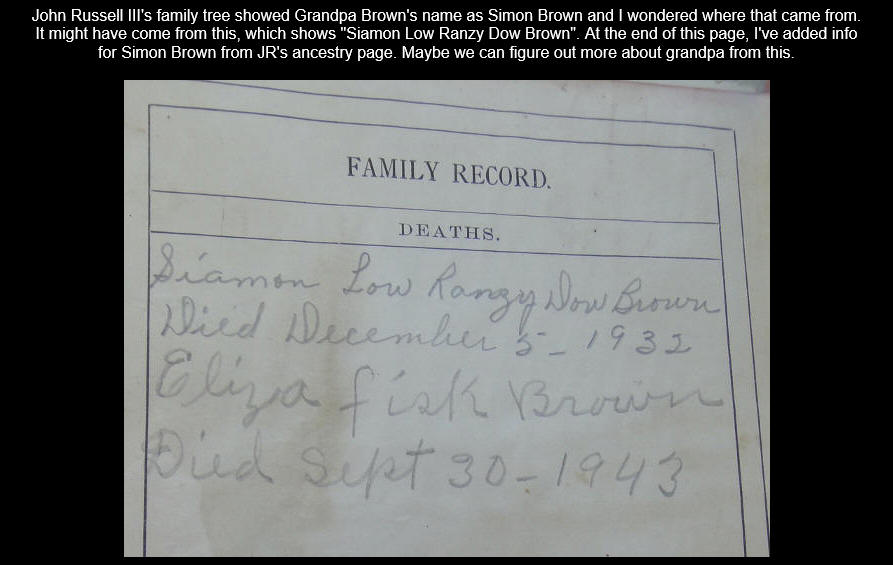 John Russell III's family tree showed Grandpa Brown's name as Simon Brown and I wondered where that came from.
It might have come from this, which shows "Siamon Low Ranzy Dow Brown". At the end of this page, I've added info
for Simon Brown from JR's ancestry page. Maybe we can figure out more about grandpa from this.
FAMILY RECORD.
DEATHS.
Siamon Low Ranzy Dow Brown
Died December 5 - 1932
Eliza fisk Brown
Died Sept 30 - 1943